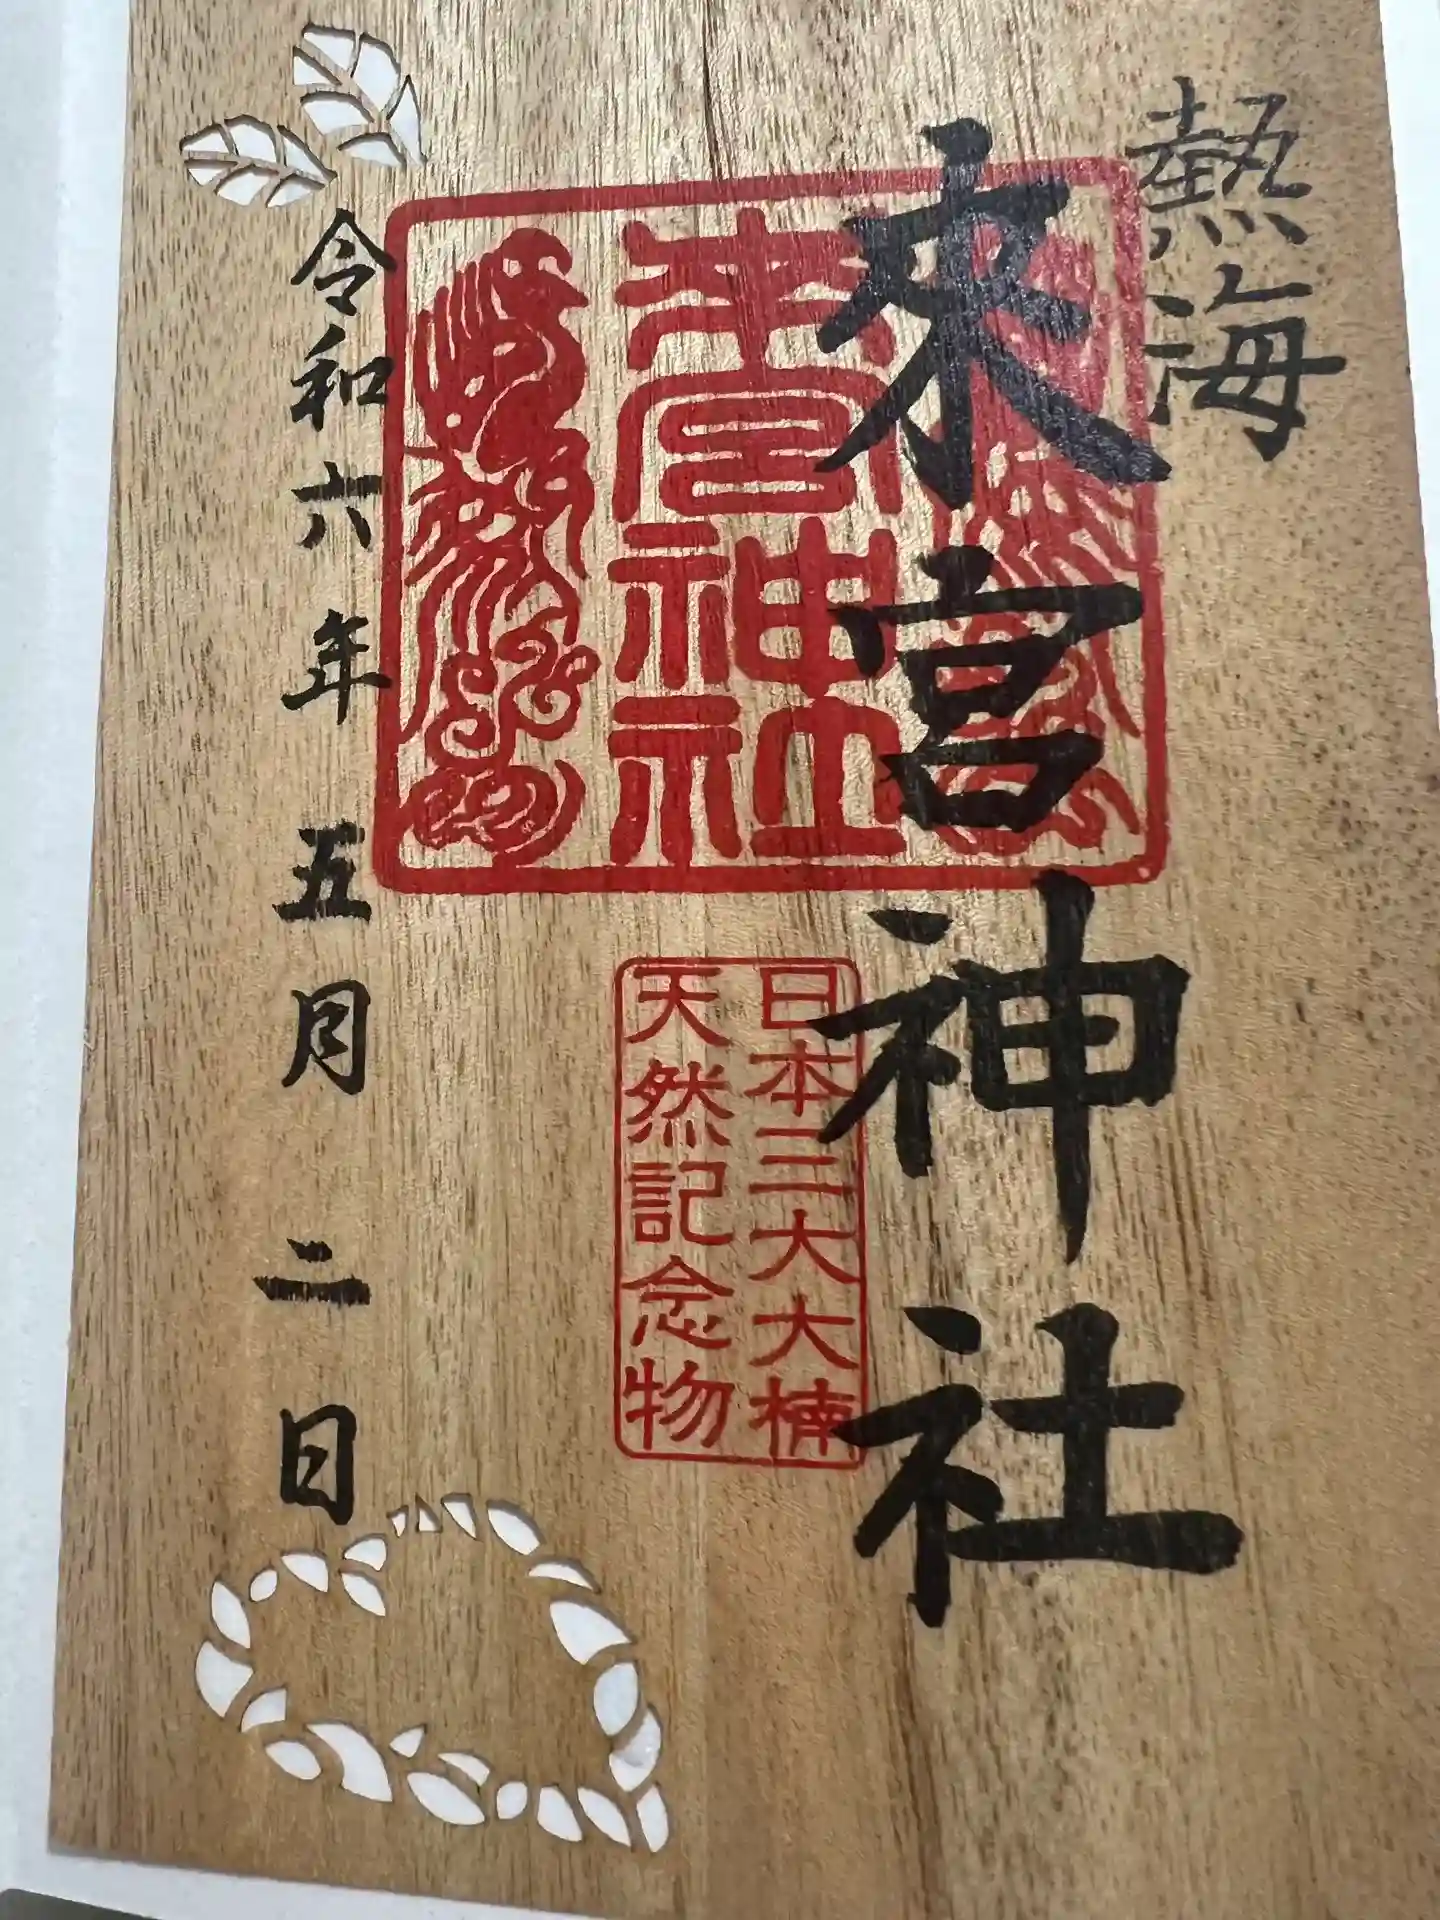 熱海
來宮神社
來宮神社
日本三大大楠
天然記念物
令和六年五月二日